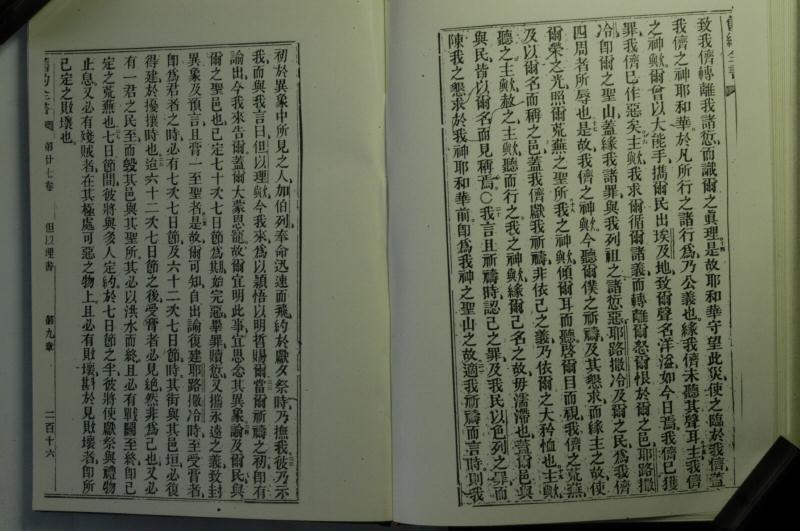 舊約全書
致我儕轉離我諸愆而識爾之眞理是故耶和華守望此災使之臨於我儕蓋
我儕之神耶和華於凡所行之諸行爲乃公義也緣我儕未聽其聲耳主我儕
之神歟爾曾以大能手擕爾民出埃及地致爾聲名洋溢如今日焉我儕已獲
罪我儕已作惡矣主歟我求爾循爾諸義而轉離爾怒爾恨於爾之邑耶路撒
冷卽爾之聖山蓋緣我諸罪與我列祖之諸愆惡耶路撒冷及爾之民爲我儕
四周者所辱也是故我儕之神歟今聽爾僕之祈禱及其懇求而緣主之故使
爾榮之光照爾荒蕪之聖所我之神歟傾爾耳而聽啓爾目而視我儕之荒蕪
及以爾名而稱之邑蓋我儕獻我祈禱非依己之義乃依爾之大矜恤也主歟
聽之主歟赦之主歟聽而行之我之神歟緣爾己名之故毋濡滯也蓋爾邑與
與民皆以爾名而見稱焉○我言且祈禱時認己之罪及我民以色列之罪而
陳我之懇求於我神耶和華前卽爲我神之聖山之故適我祈禱而言時則我
初於異象中所見之人加伯列奉命迅速而飛約於獻夕祭時乃撫我彼乃示
我而與我言曰但以理歟今我來爲以穎悟以明哲賜爾當爾祈禱之初卽有
諭出今我來告爾蓋爾大蒙恩寵故爾宜明此事宜思念其異象諭及爾民與
爾之聖邑也已定七十次七日節爲期始完惡畢罪贖愆又擕永遠之義致封
異象及預言且膏一至聖者是故爾可知自出諭復建耶路撒冷時至受膏者
卽爲君者之時必有七次七日節及六十二次七日節時其街與其邑垣必復
得建於擾攘時也迨六十二次七日節之後受膏者必見絶然非爲己也又必
有一君之民至而毀其邑與其聖所其必以洪水而終且必有戰鬬至終卽已
定之荒蕪也七日節間彼將與多人定約於七日節之半彼將使獻祭與禮物
止息又必有殘賊者在其極處可惡之物上且必有敗壞斟於見敗壞者卽所
已定之敗壞也
舊約全書 第廿七卷 但以理書 第九章 二百十六